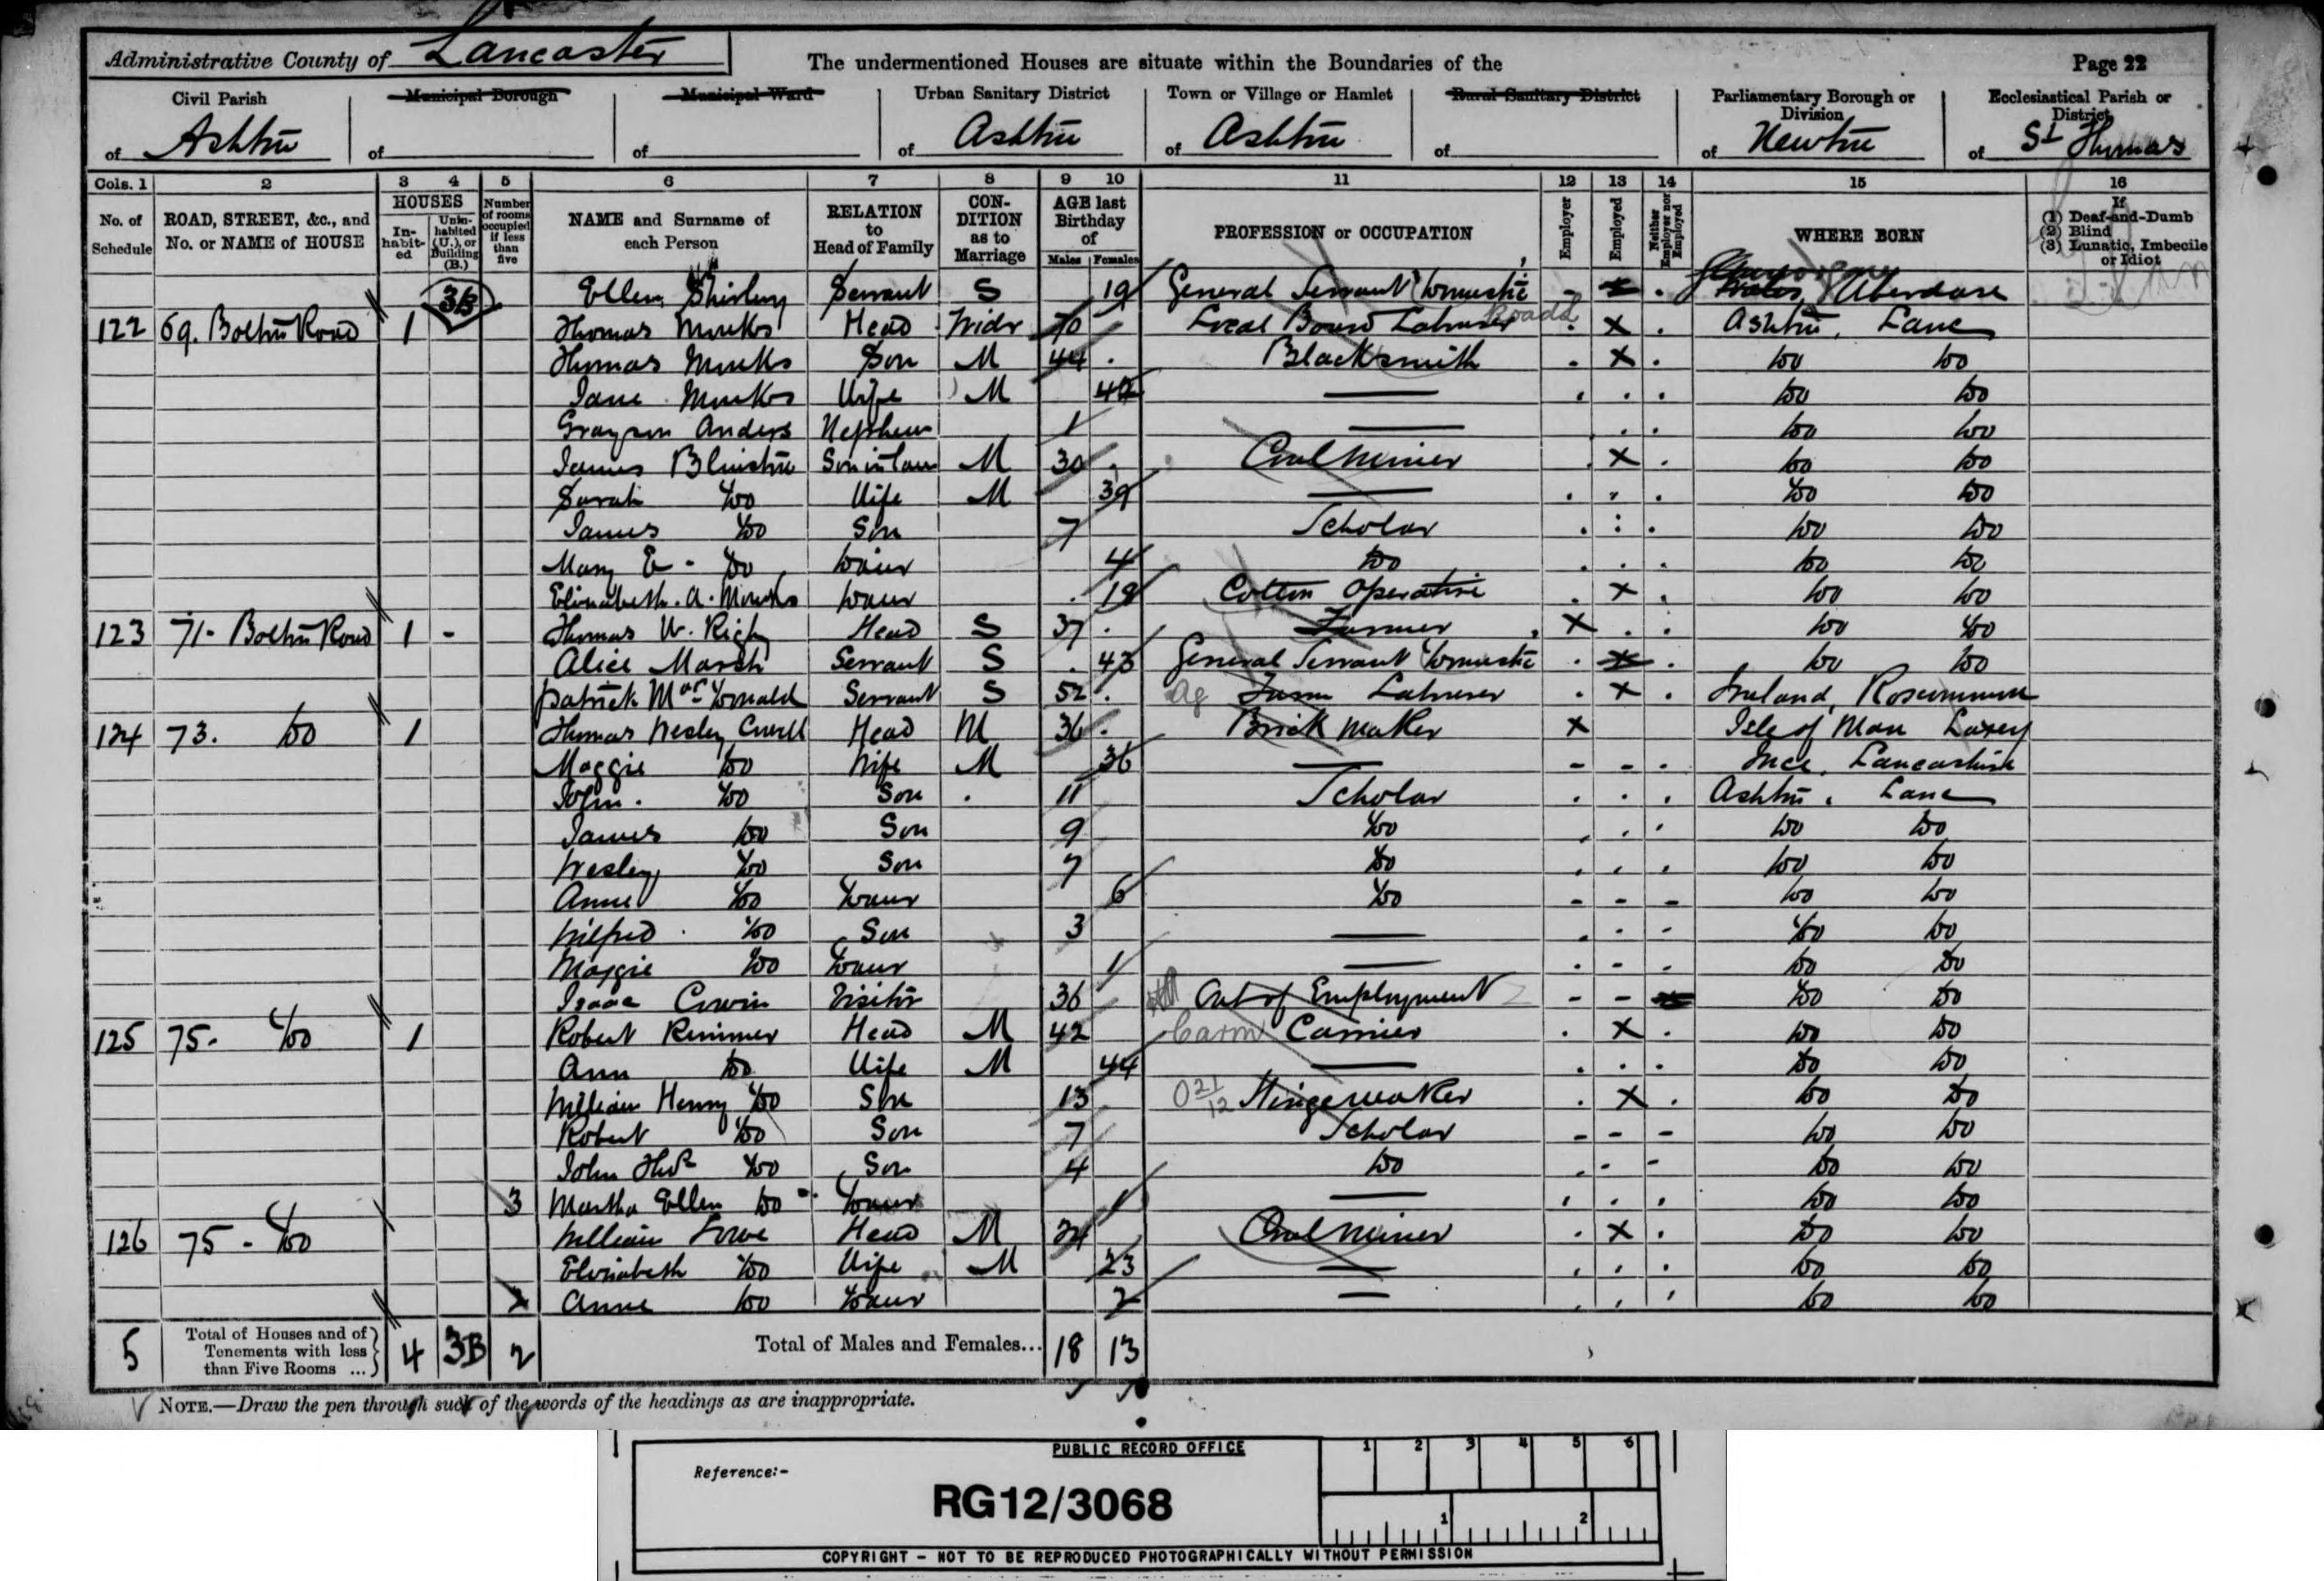 Administrative County of Lancaster
The undermentioned Houses are situate within the Boundaries of the
Page 22
Civil Parish of Ashton
Municipal Borough of
Municipal Ward of
Urban Sanitary District of Ashton
Town or Village or Hamlet of Ashton
Rural Sanitary District of
Parliamentary Borough or Division of Newton
Ecclesiastical Parish or District of St Thomas
Cols. 1 2 3 4 5 6 7 8 9 10 11 12 13 14 15 16
No. of Schedule
ROAD, STREET, &c., and No. or NAME of HOUSE
HOUSES
In-habit-ed
Unin-habited (U.), or Building (B.)
Number of rooms occupied if less than five
NAME and Surname of each Person
RELATION to Head of Family
CON-DITION as to Marriage
AGE last Birthday of
Males Females
PROFESSION or OCCUPATION
Employer
Employed
Neither Employer nor Employed
WHERE BORN
If
(1) Deaf-and-Dumb
(2) Blind
(3) Lunatic, Imbecile or Idiot
3B Ellen Shirley Servant S 19 General Servant Domestic x Glamorgan Wales, Aberdare
122 69. Bolton Road 1 Thomas Monks Head Widr 70 Local Board Labourer Roads x Ashton, Lanc
Thomas Monks Son M 44 Blacksmith x Do Do
Jane Monks Wife M 42 — Do Do
Grayson Anders Nephew 1 — Do Do
James Blinston Son in law M 30 Coal Miner x Do Do
Sarah Do Wife M 39 — Do Do
James Do Son 7 Scholar Do Do
Mary E. Do Daur 4 Do Do Do
Elizabeth. A. Monks Daur 18 Cotton Operative x Do Do
123 71. Bolton Road 1 - Thomas W. Rigby Head S 37 Farmer x Do Do
Alice Marsh Servant S 43 General Servant Domestic x Do Do
Patrick Mac Donald Servant S 52 Ag Farm Labourer x Ireland, Roscommon
124 73. Do 1 Thomas Wesley Head M 36 Brick Maker x Isle of Man Laxey
Maggie Do Wife M 36 — Ince, Lancashire
John. Do Son 11 Scholar Ashton, Lanc
James Do Son 9 Do Do Do
Wesley Do Son 7 Do Do Do
Anne Do Daur 6 Do Do Do
Wilfred Do Son 3 — Do Do
Maggie Do Daur 1 — Do Do
Isaac Visitor 36 Out of Employment x Do Do
125 75. Do 1 Robert Rimmer Head M 42 Carm Carrier x Do Do
Ann Do Wife M 44 — Do Do
William Henry Do Son 13 Hingemaker x Do Do
Robert Do Son 7 Scholar Do Do
John Thos Do Son 4 Do Do Do
3 Martha Ellen Do Daur 1 — Do Do
126 75 - Do William Lowe Head M 24 Coal Miner x Do Do
Elizabeth Do Wife M 23 — Do Do
2 Anne Do Daur 2 — Do Do
5 Total of Houses and of Tenements with less than Five Rooms ... 4 3B 2 Total of Males and Females... 18 13
NOTE.—Draw the pen through such of the words of the headings as are inappropriate.
PUBLIC RECORD OFFICE
1 2 3 4 5 6
Reference:-
RG12/3068
1 2
COPYRIGHT - NOT TO BE REPRODUCED PHOTOGRAPHICALLY WITHOUT PERMISSION